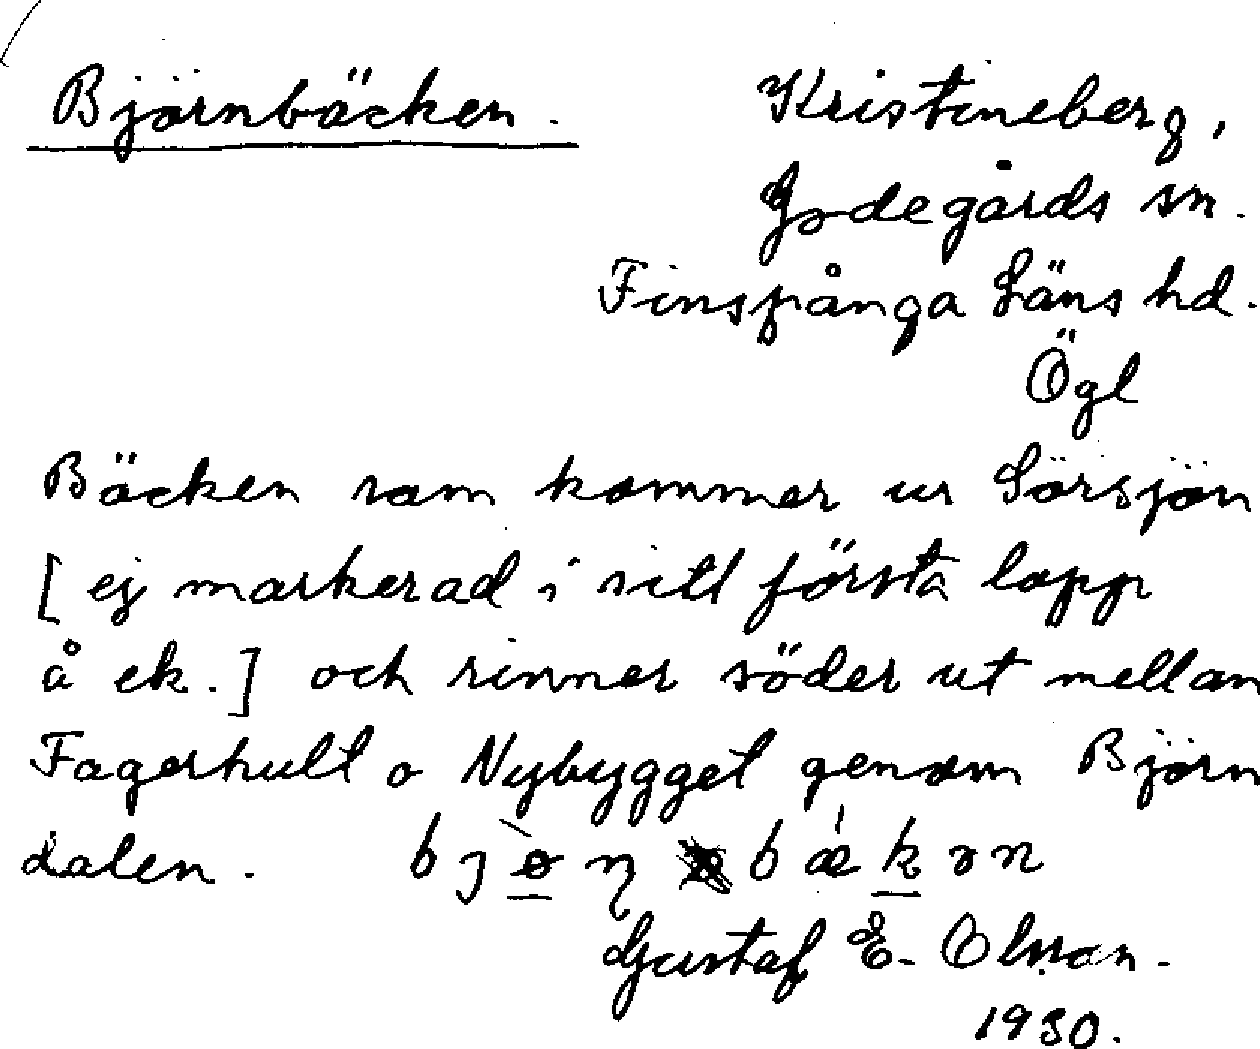 Björnbäcken.
Kristineberg,
Godegårds sn.
Finspånga Läns hd.
Ögl
Bäcken som kommer ur Sörsjön
[ej markerad i sitt första lopp
å ek.] och rinner söder ut mellan
Fagerhult o Nybygget genom Björn
dalen.
Gustaf E. Olsson.
1930.